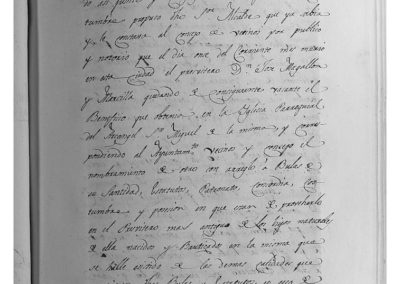 tumbre propuso dho Sor Alcalde que ya sabia
y le constava al conzejo de vecinos por publico
y notorio que el dia once del Corriente mes murio
en esta ciudad el presvitero Dn Josef Magallon
y Mancilla quedando de consiguiente vacante el
Beneficio que obtenia en la Yglesia Parroquial
del Arcangel Sn Miguel de la misma, y corres
pondiendo al Ayuntamto vecinos y conzejo el
nombramiento de otro con arreglo a Bulas de
su Santidad, Estatutos, Patronato, concordia, cos
tumbre y posesion en que estan de proveherlo
en el Presvitero mas antiguo de los hijos naturales
de ella nacidos y Bautizados en la misma que
se halle asistido de las demas calidades que